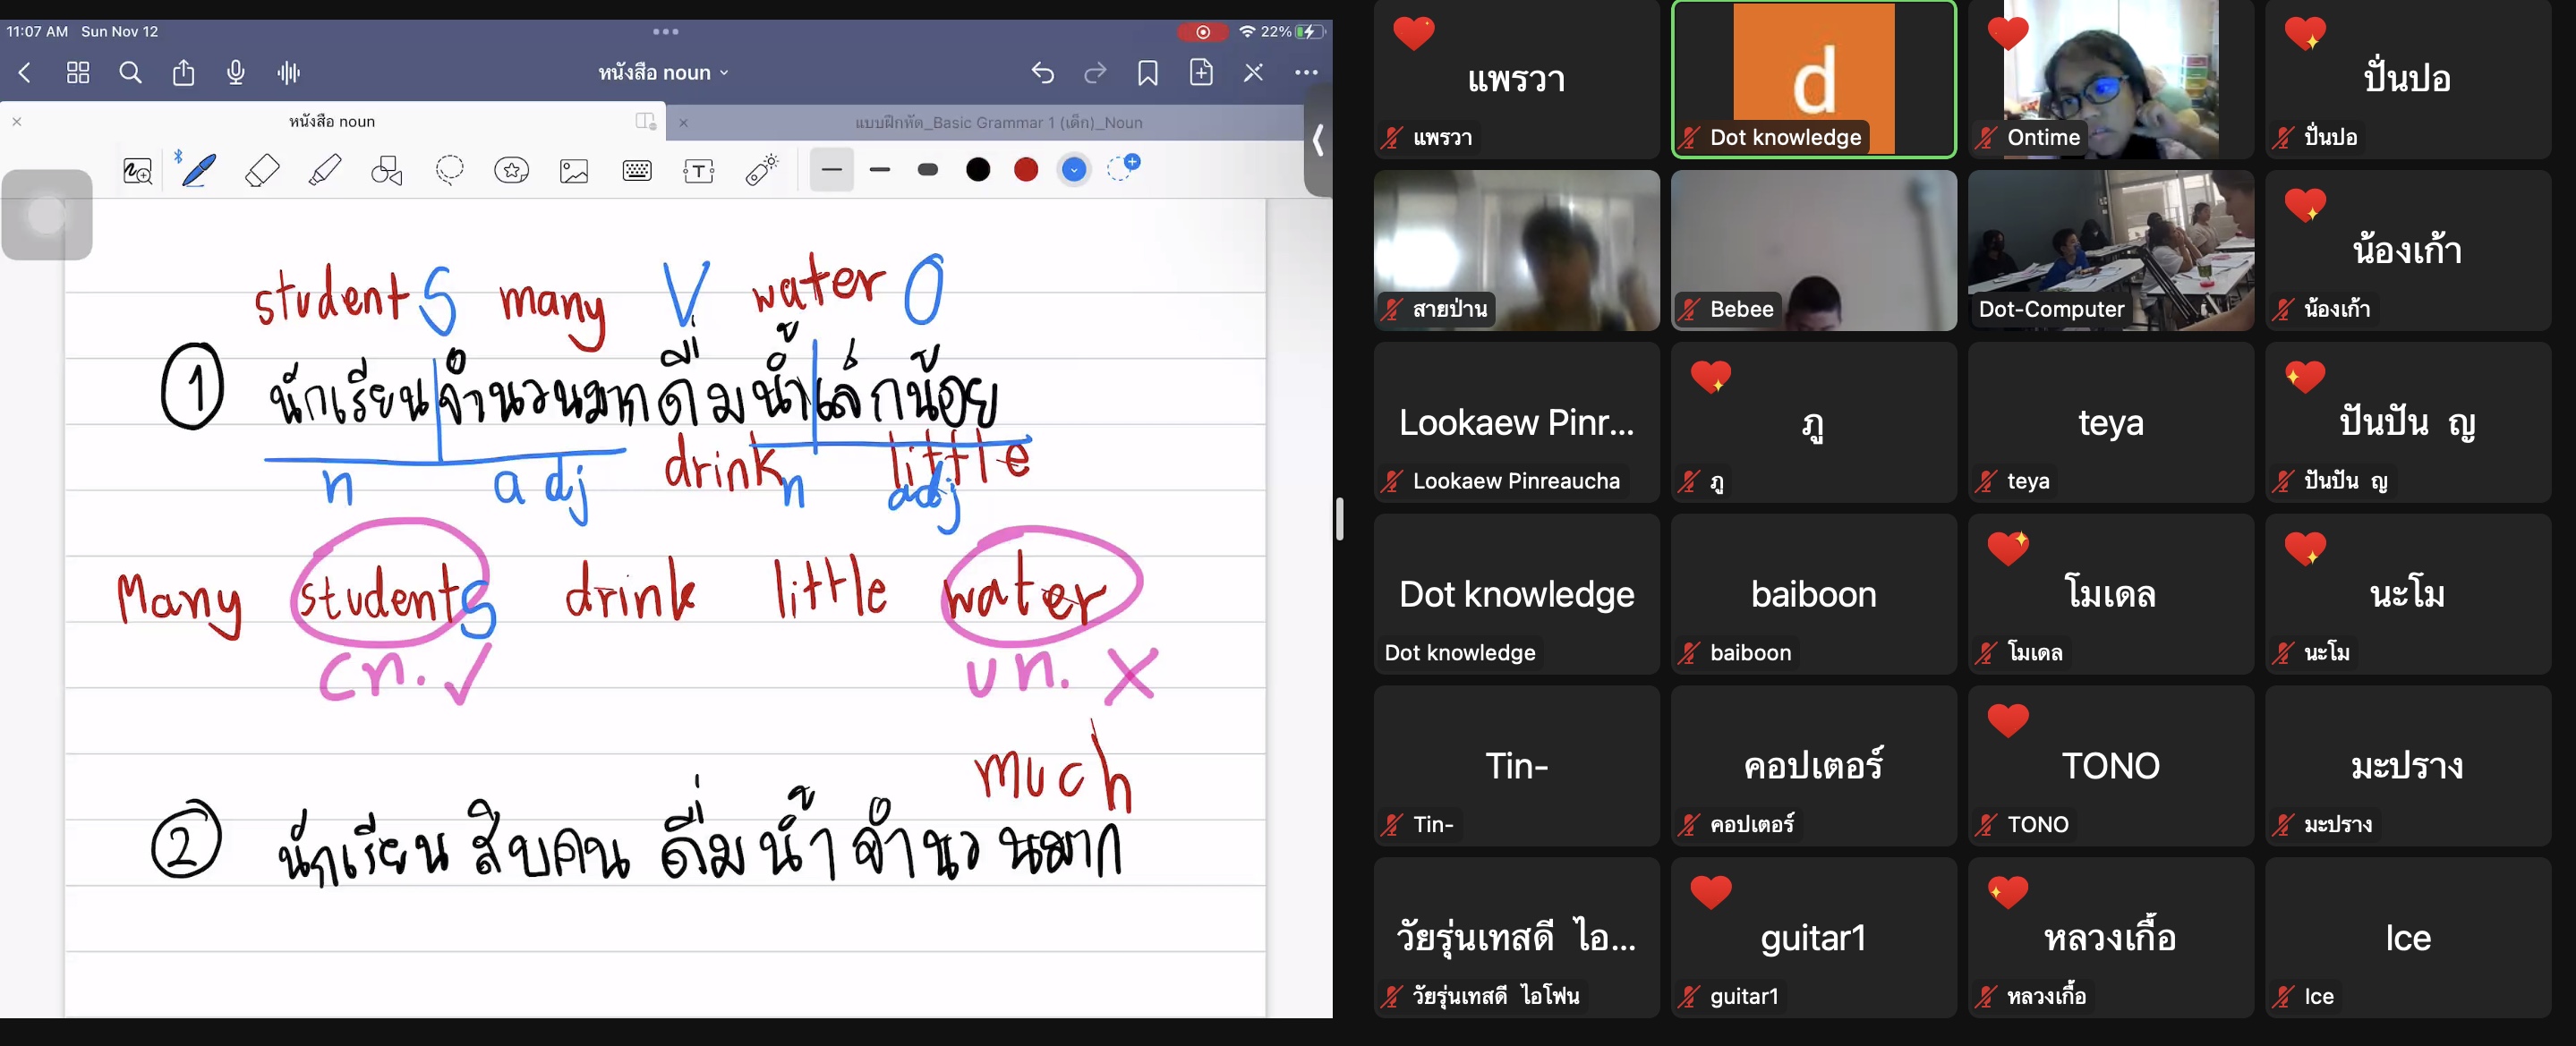 11:07 AM Sun Nov 12
22%
หนังสือ noun
หนังสือ noun
แบบฝึกหัด_Basic Grammar 1 (เด็ก)_Noun
T
student S many V water O
1 นักเรียนจำนวนมากดื่มน้ำเล็กน้อย
n adj drink n little adj
Many students drink little water
cn. ✓ un. X
much
2 นักเรียน สิบคน ดื่ม น้ำ จำนวนมาก
แพรวา
แพรวา
d
Dot knowledge
Ontime
ปั่นปอ
ปั่นปอ
สายป่าน
Bebee
Dot-Computer
น้องเก้า
น้องเก้า
Lookaew Pinr...
Lookaew Pinreaucha
ภู
ภู
teya
teya
ปันปัน ญ
ปันปัน ญ
Dot knowledge
Dot knowledge
baiboon
baiboon
โมเดล
โมเดล
นะโม
นะโม
Tin-
Tin-
คอปเตอร์
คอปเตอร์
TONO
TONO
มะปราง
มะปราง
วัยรุ่นเทสดี ไอ...
วัยรุ่นเทสดี ไอโฟน
guitar1
guitar1
หลวงเกื้อ
หลวงเกื้อ
Ice
Ice